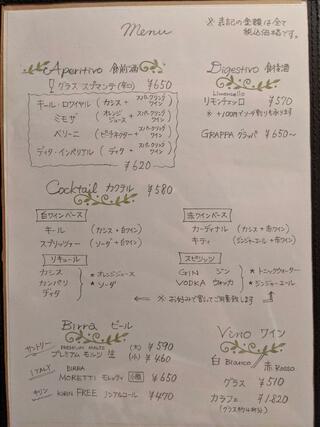 Menu
※ 表記の金額は全て
税込価格です。
Aperitivo 食前酒
グラス スプマンテ(辛口) ¥650
キール・ロワイヤル (カシス + スパークリングワイン)
ミモザ (オレンジジュース + スパークリングワイン)
ベリーニ (ピーチネクター + スパークリングワイン)
ディタ・インペリアル (ディタ + スパークリングワイン)
¥620
Digestivo 食後酒
Limoncello
リモンチェッロ ¥570
※ +100円でソーダ割りも承ります
GRAPPA グラッパ ¥650〜
Cocktail カクテル ¥580
白ワインベース
キール (カシス + 白ワイン)
スプリッツァー (ソーダ + 白ワイン)
赤ワインベース
カーディナル (カシス + 赤ワイン)
キティ (ジンジャーエール + 赤ワイン)
リキュール
カシス ★オレンジジュース
カンパリ ★ソーダ
ディタ
スピリッツ
GIN ジン ★トニックウォーター
VODKA ウォッカ ★ジンジャーエール
※ お好みで割ってご用意致します
Birra ビール
サントリー PREMIUM MALTS
プレミアム モルツ 生 (大) ¥590
(小) ¥460
ITALY BIRRA
MORETTI モレッティ 小瓶 ¥650
キリン KIRIN FREE ノンアルコール ¥470
Vino ワイン
白 Bianco / 赤 Rosso
グラス ¥510
カラフェ ¥1,820
(グラス約4杯分)